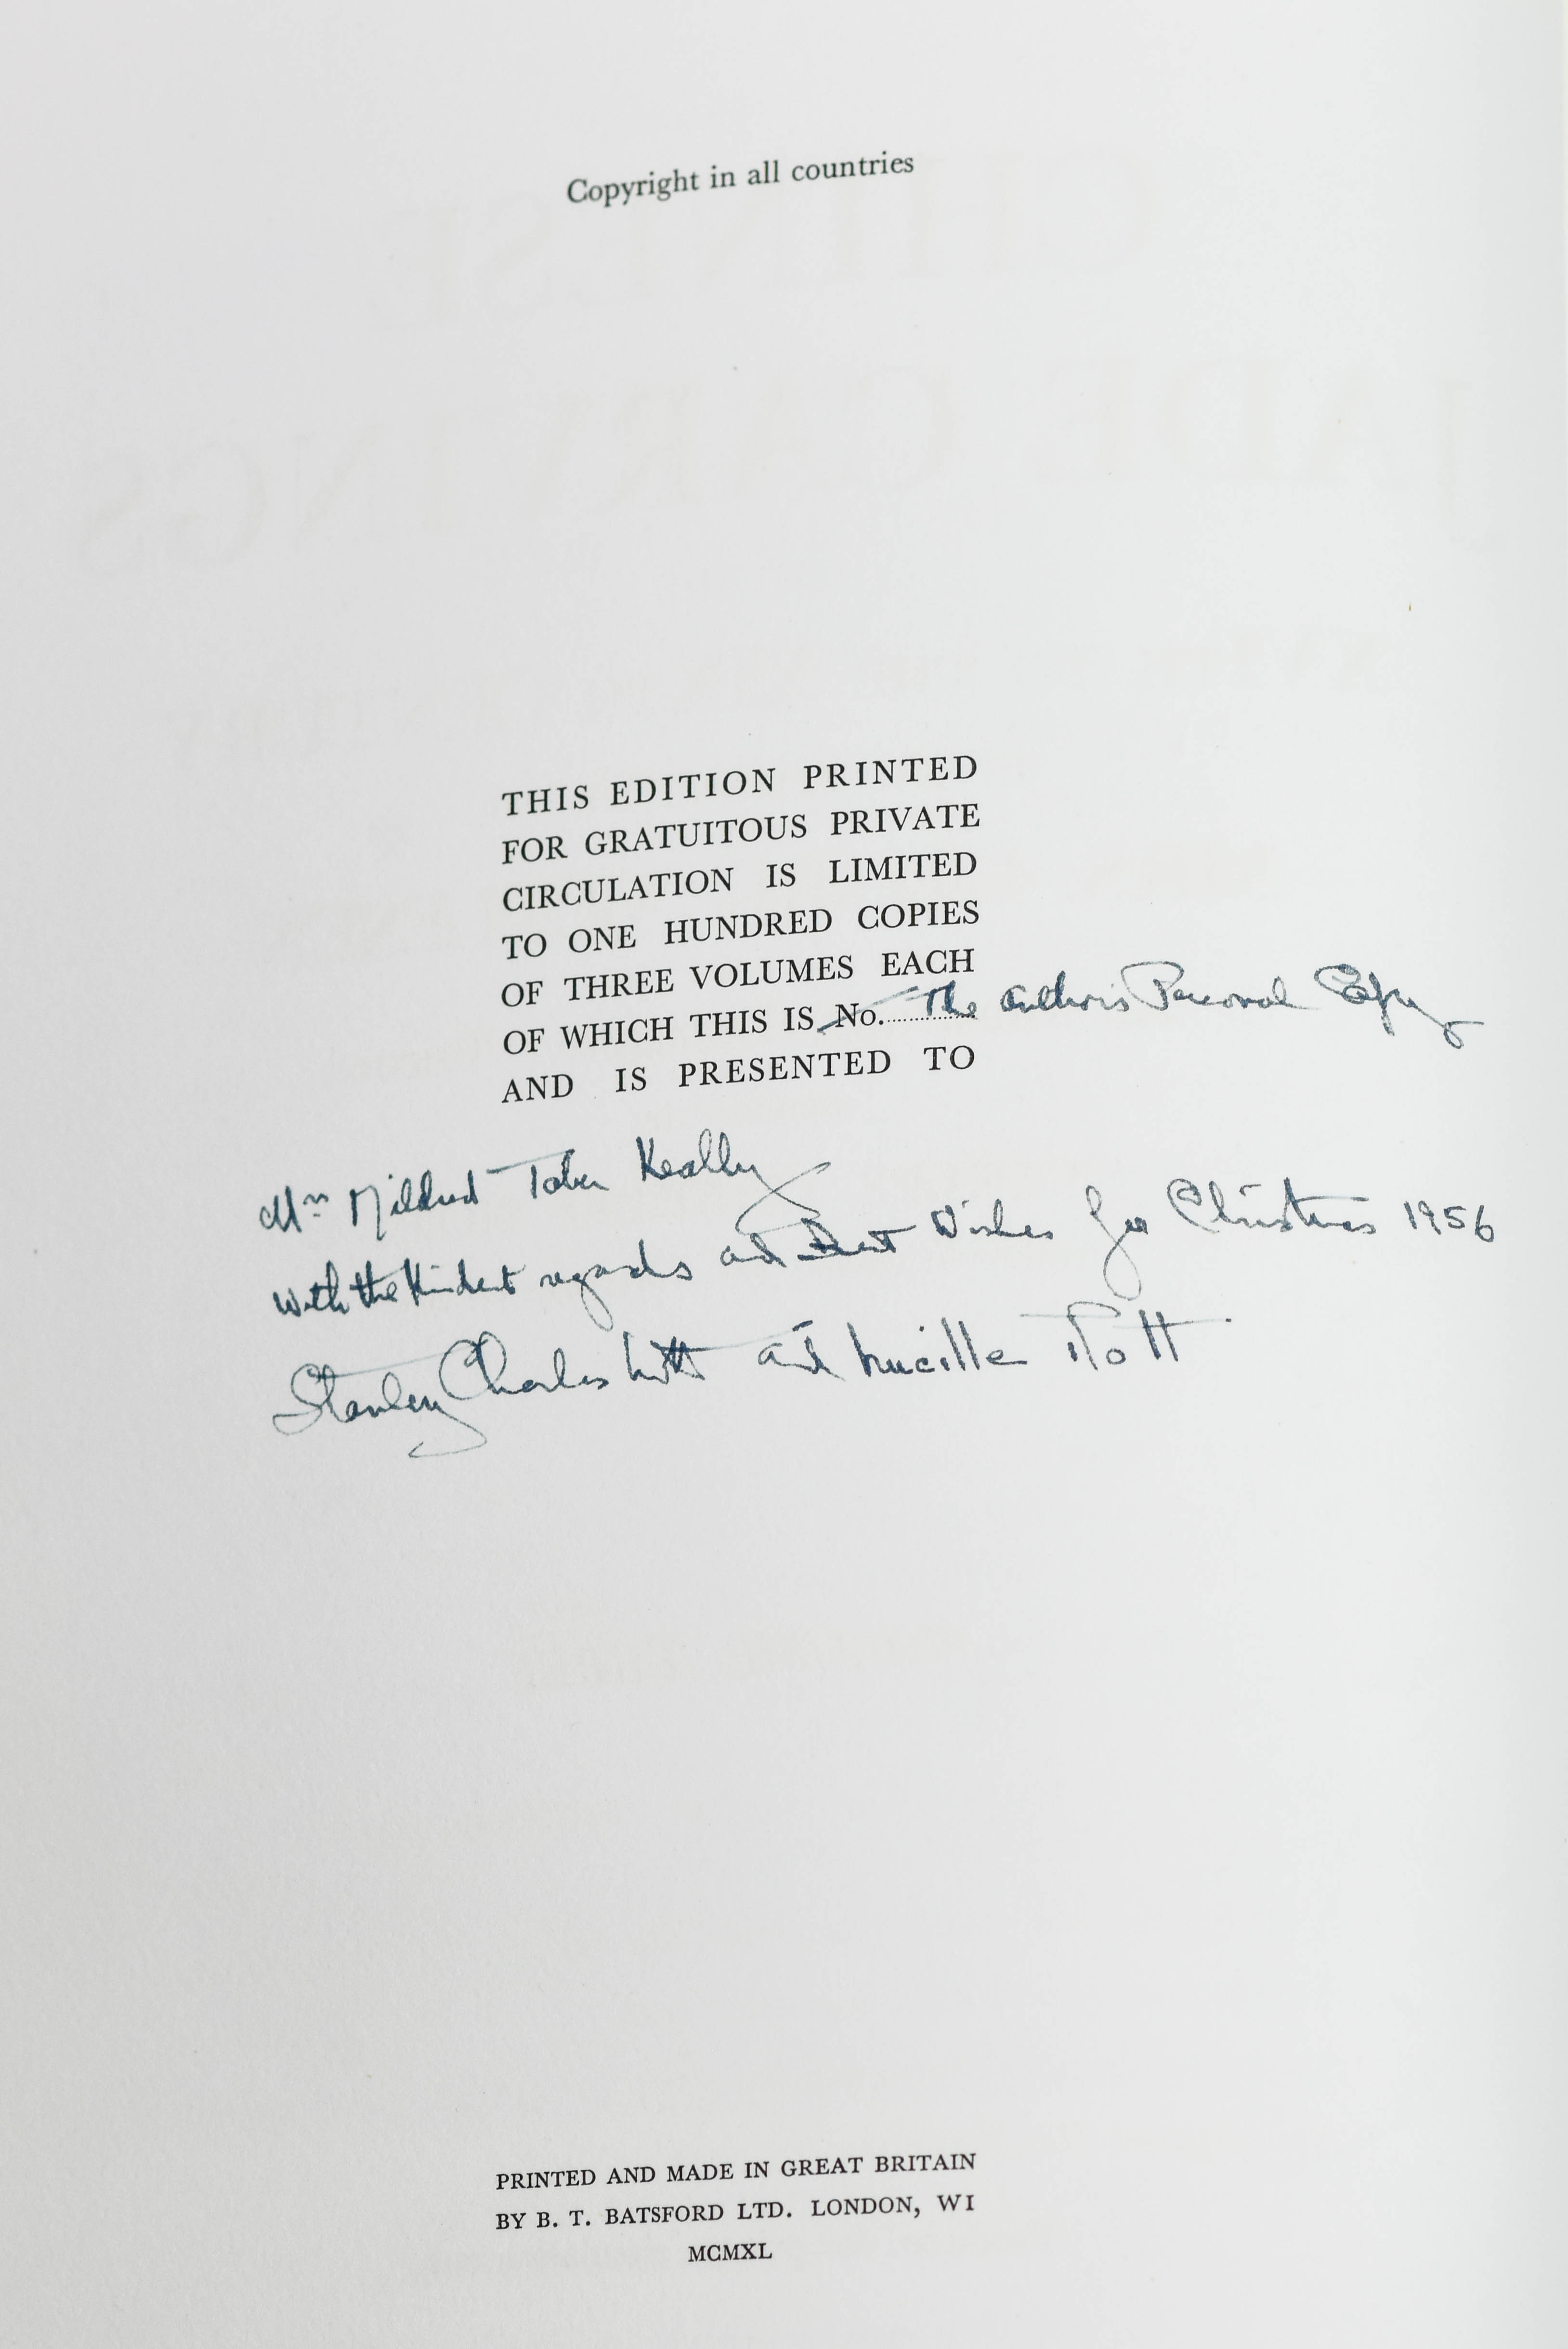 Copyright in all countries
THIS EDITION PRINTED
FOR GRATUITOUS PRIVATE
CIRCULATION IS LIMITED
TO ONE HUNDRED COPIES
OF THREE VOLUMES EACH
OF WHICH THIS IS No. The Authors Personal Copy
AND IS PRESENTED TO
Mrs Mildred Taber Keally
with the Kindest regards and Best Wishes for Christmas 1956
Stanley Charles Nott and Lucille Nott
PRINTED AND MADE IN GREAT BRITAIN
BY B. T. BATSFORD LTD. LONDON, W1
MCMXL